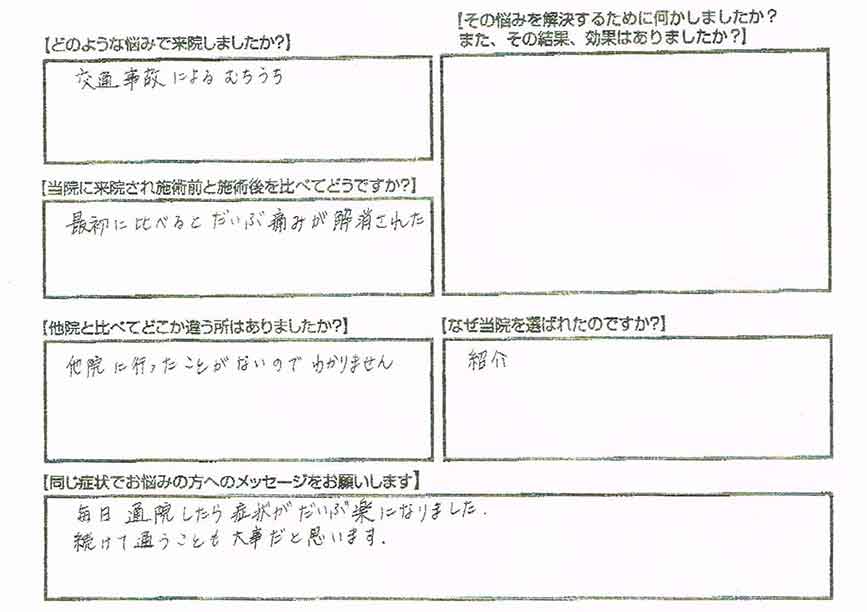 【どのような悩みで来院しましたか?】
交通事故によるむちうち
【その悩みを解決するために何かしましたか?
また、その結果、効果はありましたか?】
【当院に来院され施術前と施術後を比べてどうですか?】
最初に比べるとだいぶ痛みが解消された
【他院と比べてどこか違う所はありましたか?】
他院に行ったことがないのでわかりません
【なぜ当院を選ばれたのですか?】
紹介
【同じ症状でお悩みの方へのメッセージをお願いします】
毎日通院したら症状がだいぶ楽になりました.
続けて通うことも大事だと思います.